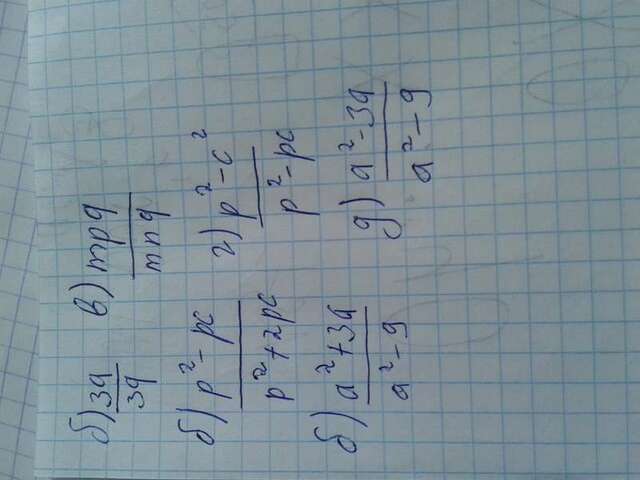 б) 3a/3q в) mpq/mnq
б) p²-pc/p²+2pc г) p²-c²/p²-pc
б) a²+3a/a²-9 д) a²-3a/a²-9